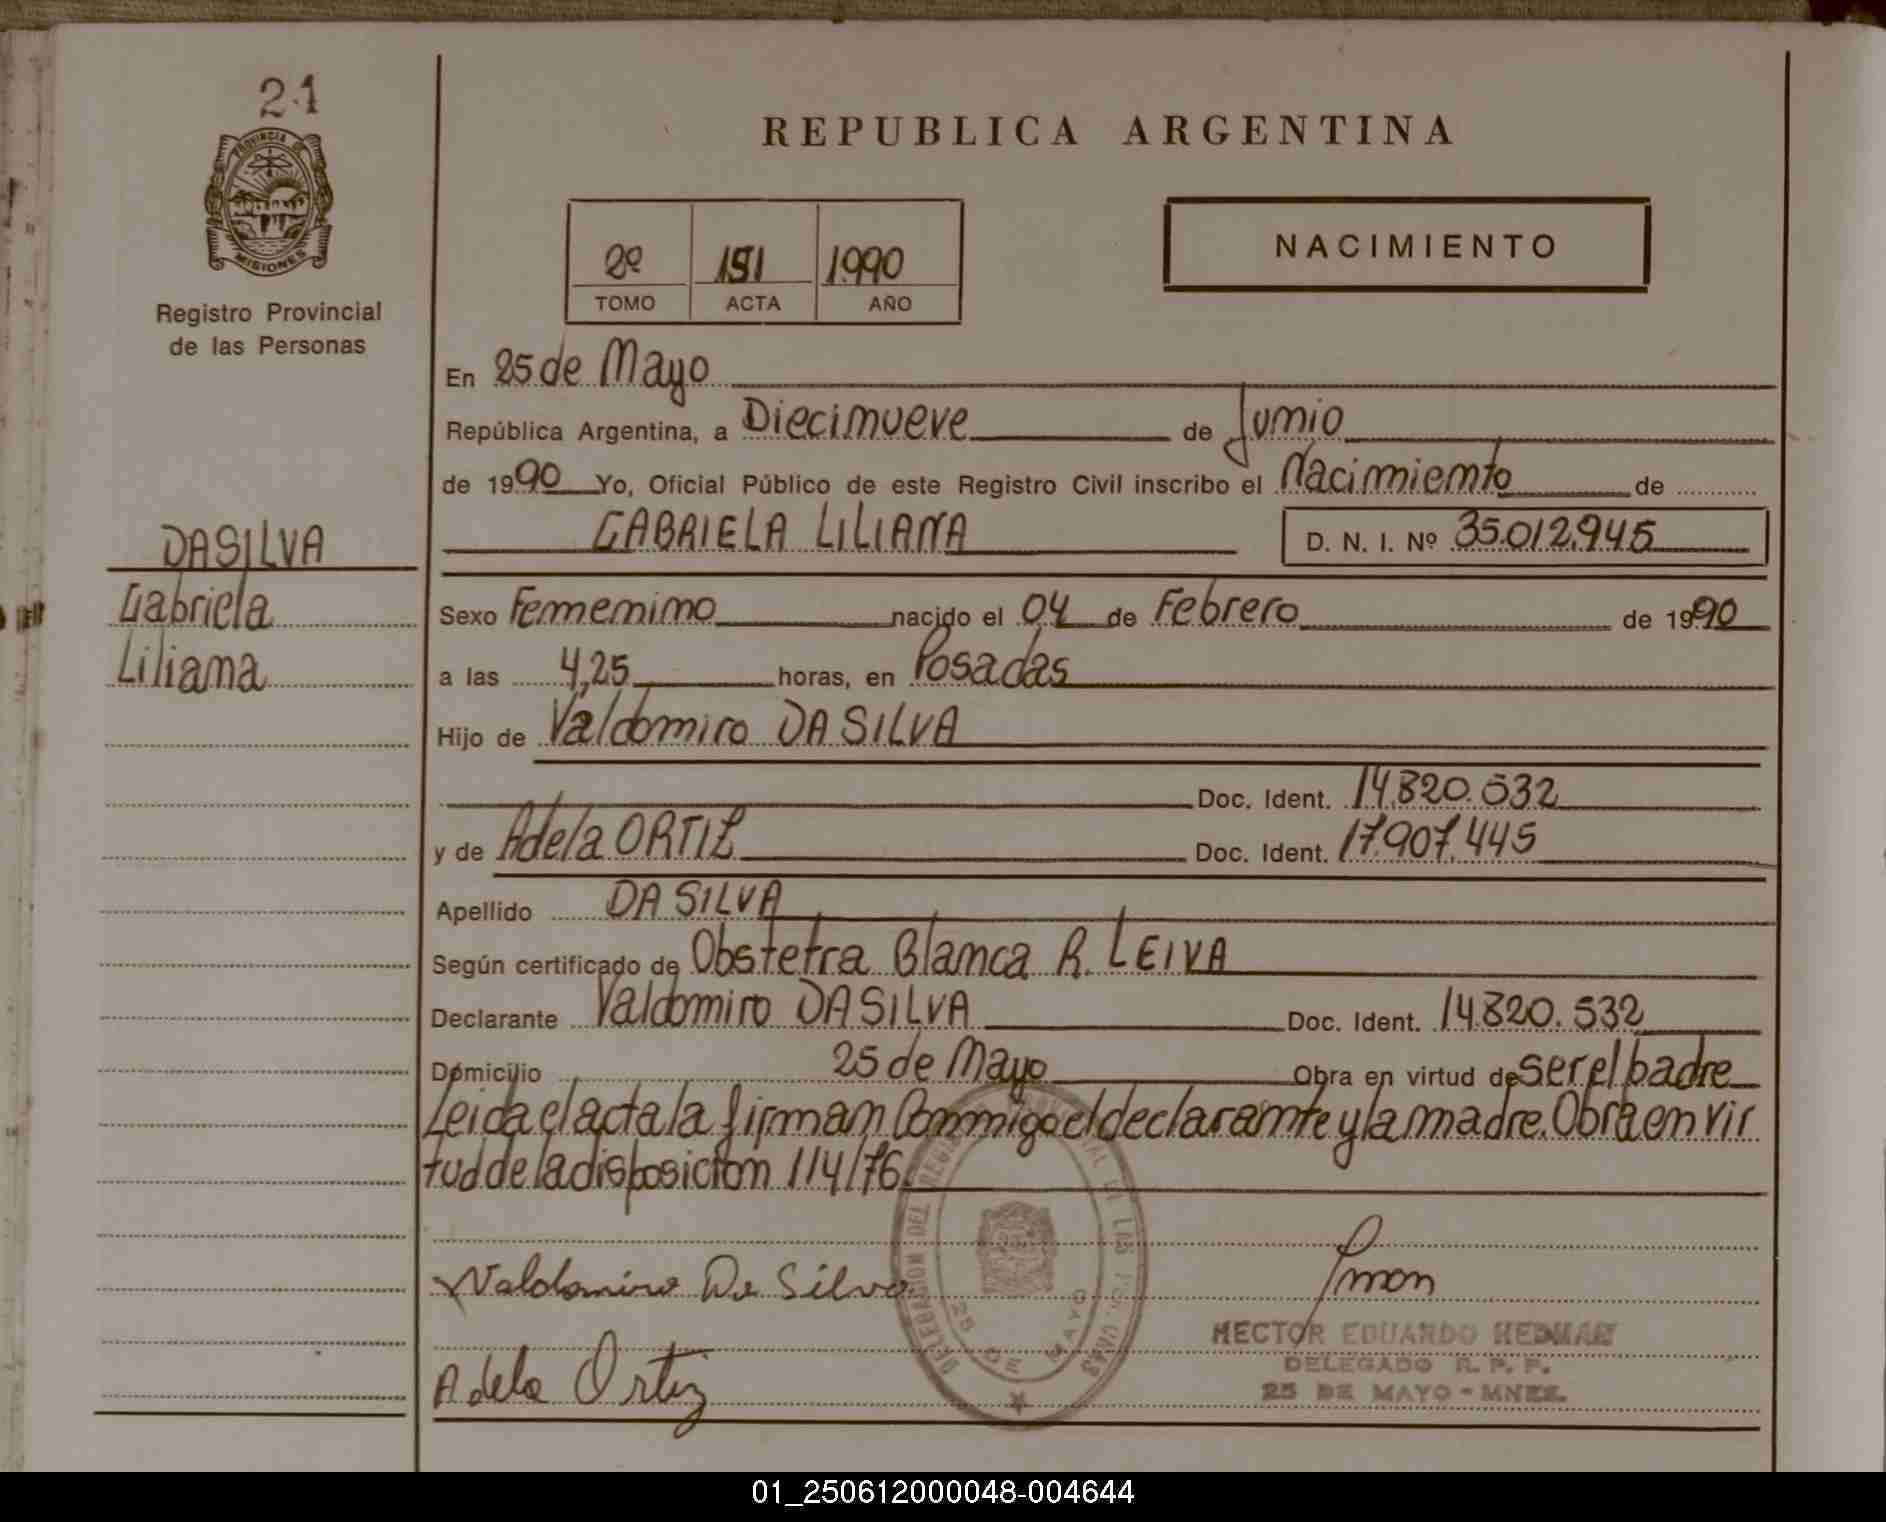 21
PROVINCIA DE
MISIONES
Registro Provincial
de las Personas
DASILVA
Gabriela
Liliana
REPUBLICA ARGENTINA
2º 151 1990
TOMO ACTA AÑO
NACIMIENTO
En 25 de Mayo
República Argentina, a Diecinueve de Junio
de 1990 Yo, Oficial Público de este Registro Civil inscribo el Nacimiento de
GABRIELA LILIANA D. N. I. Nº 35.012.945
Sexo Femenino nacido el 04 de Febrero de 1990
a las 4,25 horas, en Posadas
Hijo de Valdomiro DA SILVA
Doc. Ident. 14.820.532
y de Adela ORTIZ Doc. Ident. 17.907.445
Apellido DA SILVA
Según certificado de Obstetra Blanca R. LEIVA
Declarante Valdomiro DA SILVA Doc. Ident. 14.820.532
Domicilio 25 de Mayo Obra en virtud de ser el padre
Leida el acta la firman Conmigo el declarante y la madre. Obra en vir
tud de la disposicion 114/76.
Valdomiro Da Silva
Adela Ortiz
DELEGACION DEL REGISTRO PROVINCIAL DE LAS PERSONAS
25 DE MAYO
HECTOR EDUARDO HEDMAN
DELEGADO R. P. P.
25 DE MAYO - MNES.
01_250612000048-004644